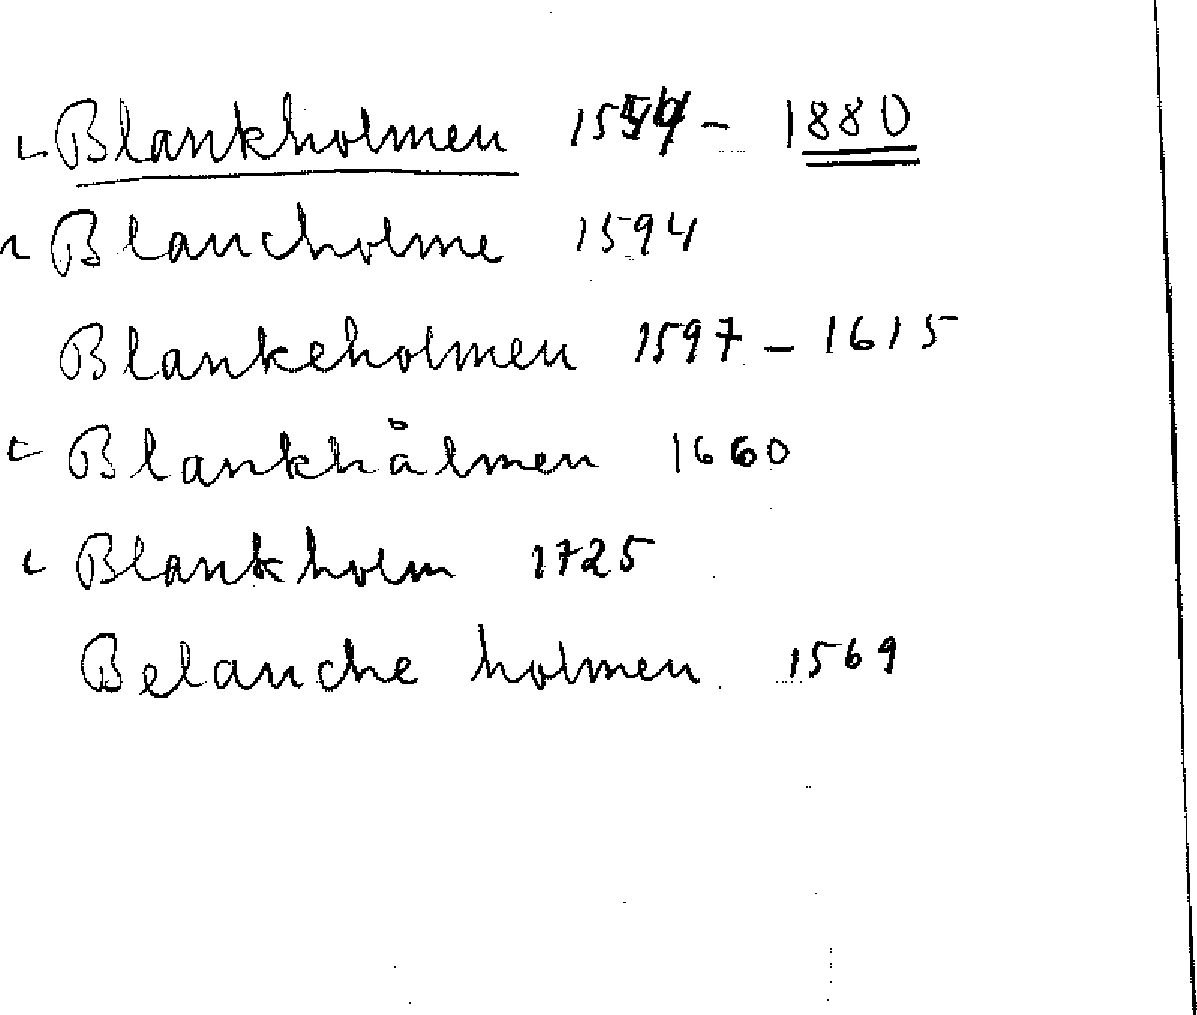 Blankholmen 1544 – 1880
Blancholme 1594
Blankeholmen 1597 – 1615
Blankhålmen 1660
Blankholm 1725
Belanche holmen 1569